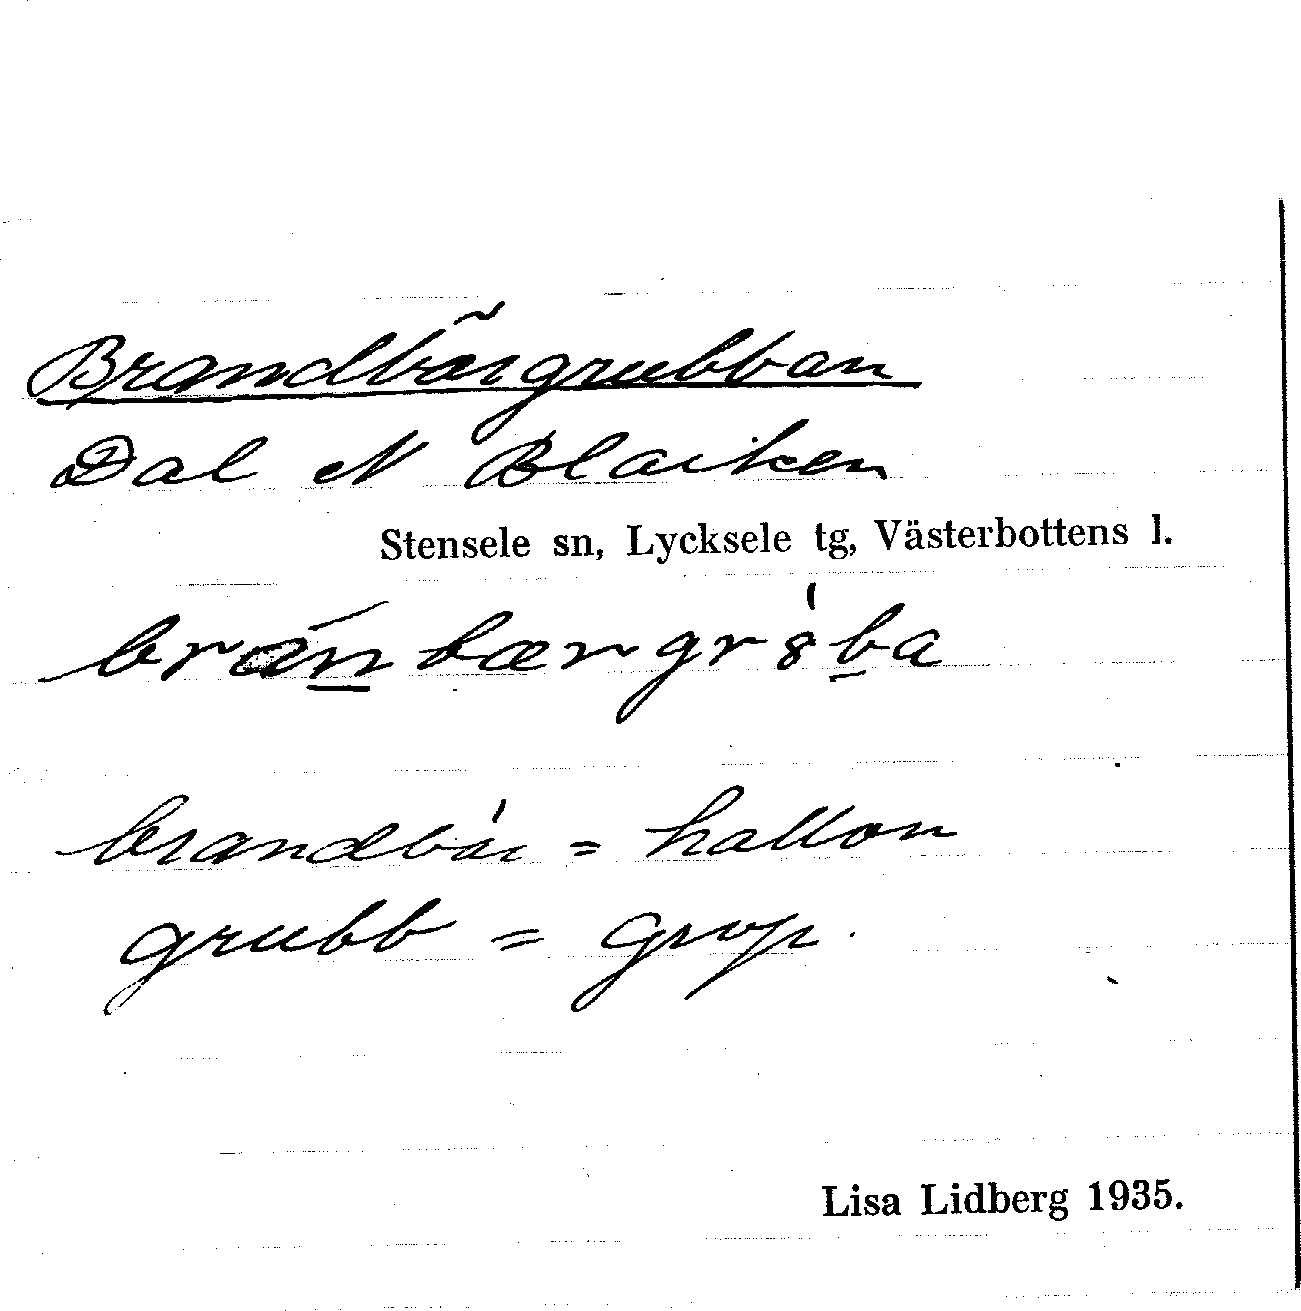 Brandbärgrubban
Dal N Blaiken
Stensele sn, Lycksele tg, Västerbottens l.
bránbærgr8̍ba
brandbär = hallon
grubb = grop.
Lisa Lidberg 1935.